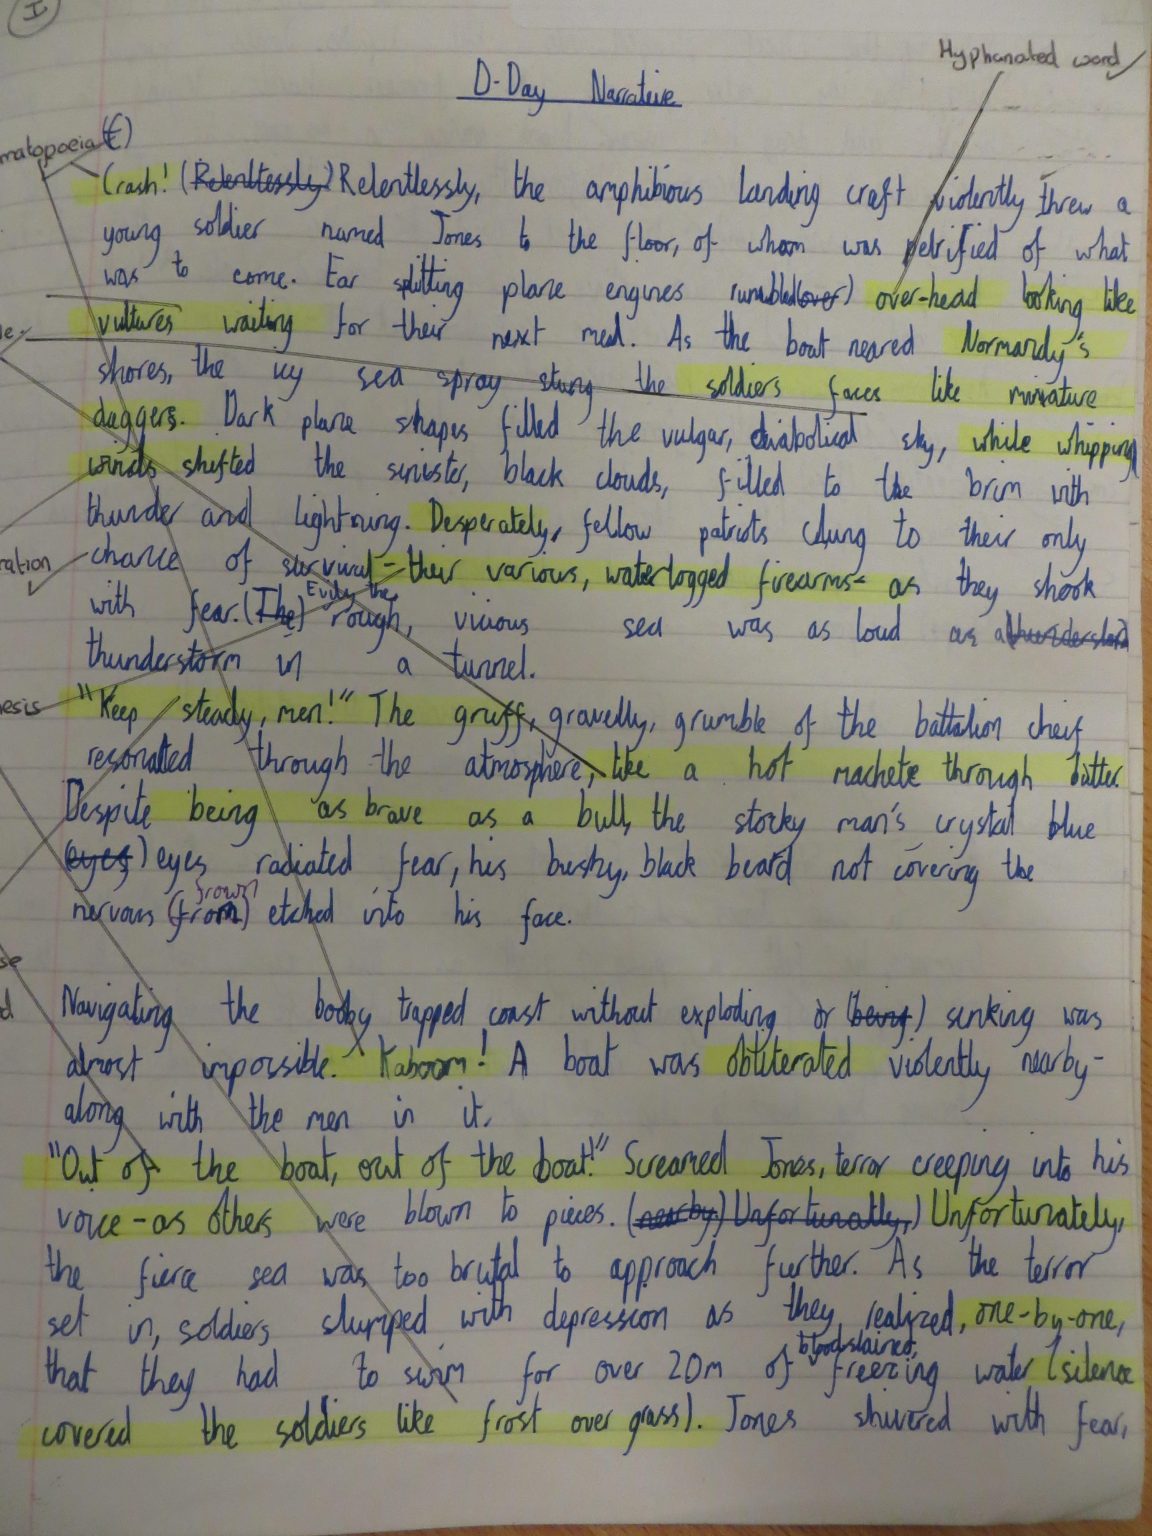 I
Hyphanated word
D-Day Narrative
matopoeia (E)
Crash! (Relentlessly) Relentlessly, the amphibious landing craft violently threw a
young soldier named Jones to the floor, of wham was petrified of what
was to come. Ear splitting plane engines rumbled (over) over-head looking like
vultures waiting for their next meal. As the boat neared Normandy's
shores, the icy sea spray stung the soldiers faces like miniature
daggers. Dark plane shapes filled the vulgar, diabolical sky, while whipping
winds shifted the sinister, black clouds, filled to the brim with
thunder and lightning. Desperately, fellow patriots clung to their only
ration
chance of survival - their various, waterlogged firearms - as they shook
with fear. (The) Evily the rough, vicious sea was as loud as a
thunderstorm in a tunnel.
esis
"Keep steady, men!" The gruff, gravelly, grumble of the battalion cheif
resonated through the atmosphere, like a hot machete through butter.
Despite being as brave as a bull, the stocky man's crystal blue
(eyes) eyes radiated fear, his bushy, black beard not covering the
nervous (from) frown etched into his face.
se
d
Navigating the booby trapped coast without exploding or (being) sinking was
almost impossible. Kaboom! A boat was obliterated violently nearby-
along with the men in it.
"Out of the boat, out of the boat!" Screamed Jones, terror creeping into his
voice - as others were blown to pieces. (nearby) Unfortunatly,) Unfortunately,
the fierce sea was too brutal to approach further. As the terror
set in, soldiers slumped with depression as they realized, one-by-one,
that they had to swim for over 20m of bloodstained, freezing water (silence
covered the soldiers like frost over grass). Jones shivered with fear,